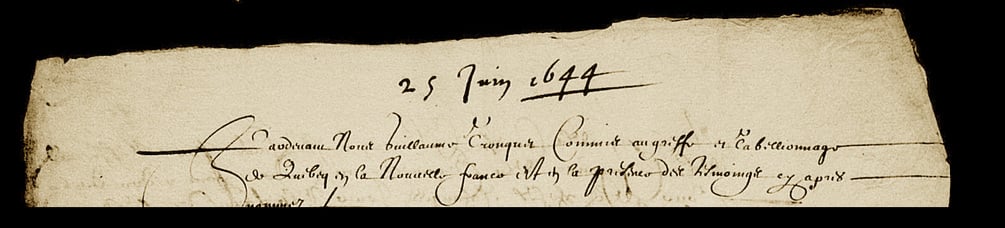 25 Juin 1644
Pardevant Nous Guillaume Tronquet Commis au greffe et Tabellionnage
de Quebeq en la Nouvelle france et en la presence des tesmoings cy apres
nommez